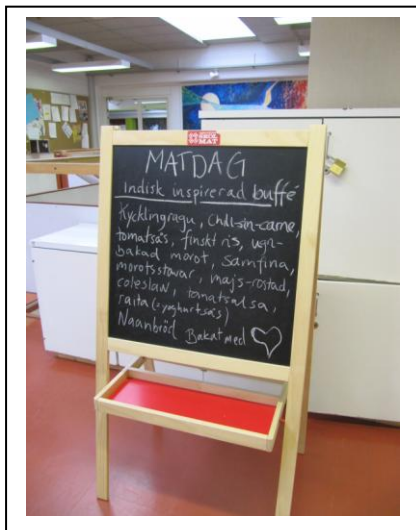 SKOL
MAT
MATDAG
Indisk inspirerad buffé
Kycklingragu, Chili-sin-carne,
tomatsås, finskt ris, ugn-
bakad morot, Samfina,
morotsstavar, majs-rostad,
coleslaw, tomatsalsa,
raita (=yoghurtsås)
Naanbröd Bakat med